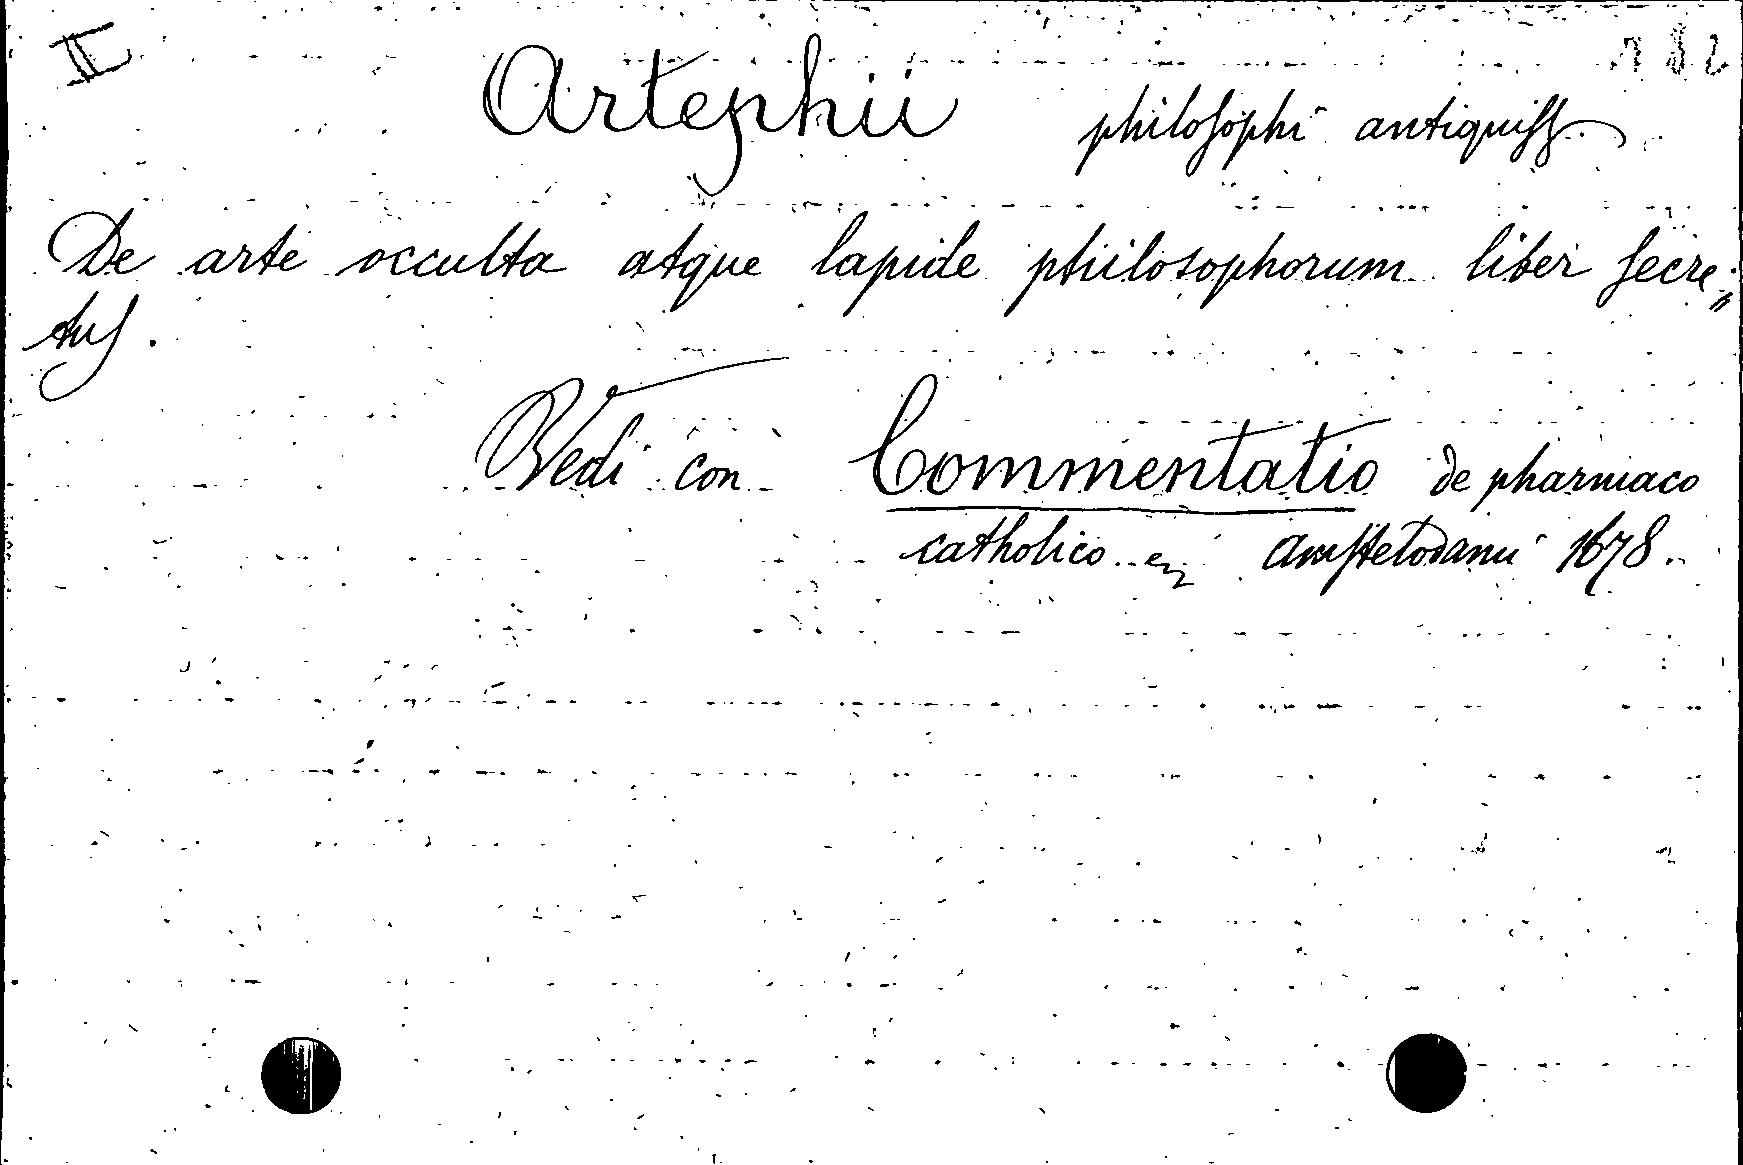 II
182
Artephii philosophi antiquiss.
De arte occulta atque lapide philosophorum liber secre„
tus.
Vedi con Commentatio de pharmaco
catholico Amstelodami 1678.